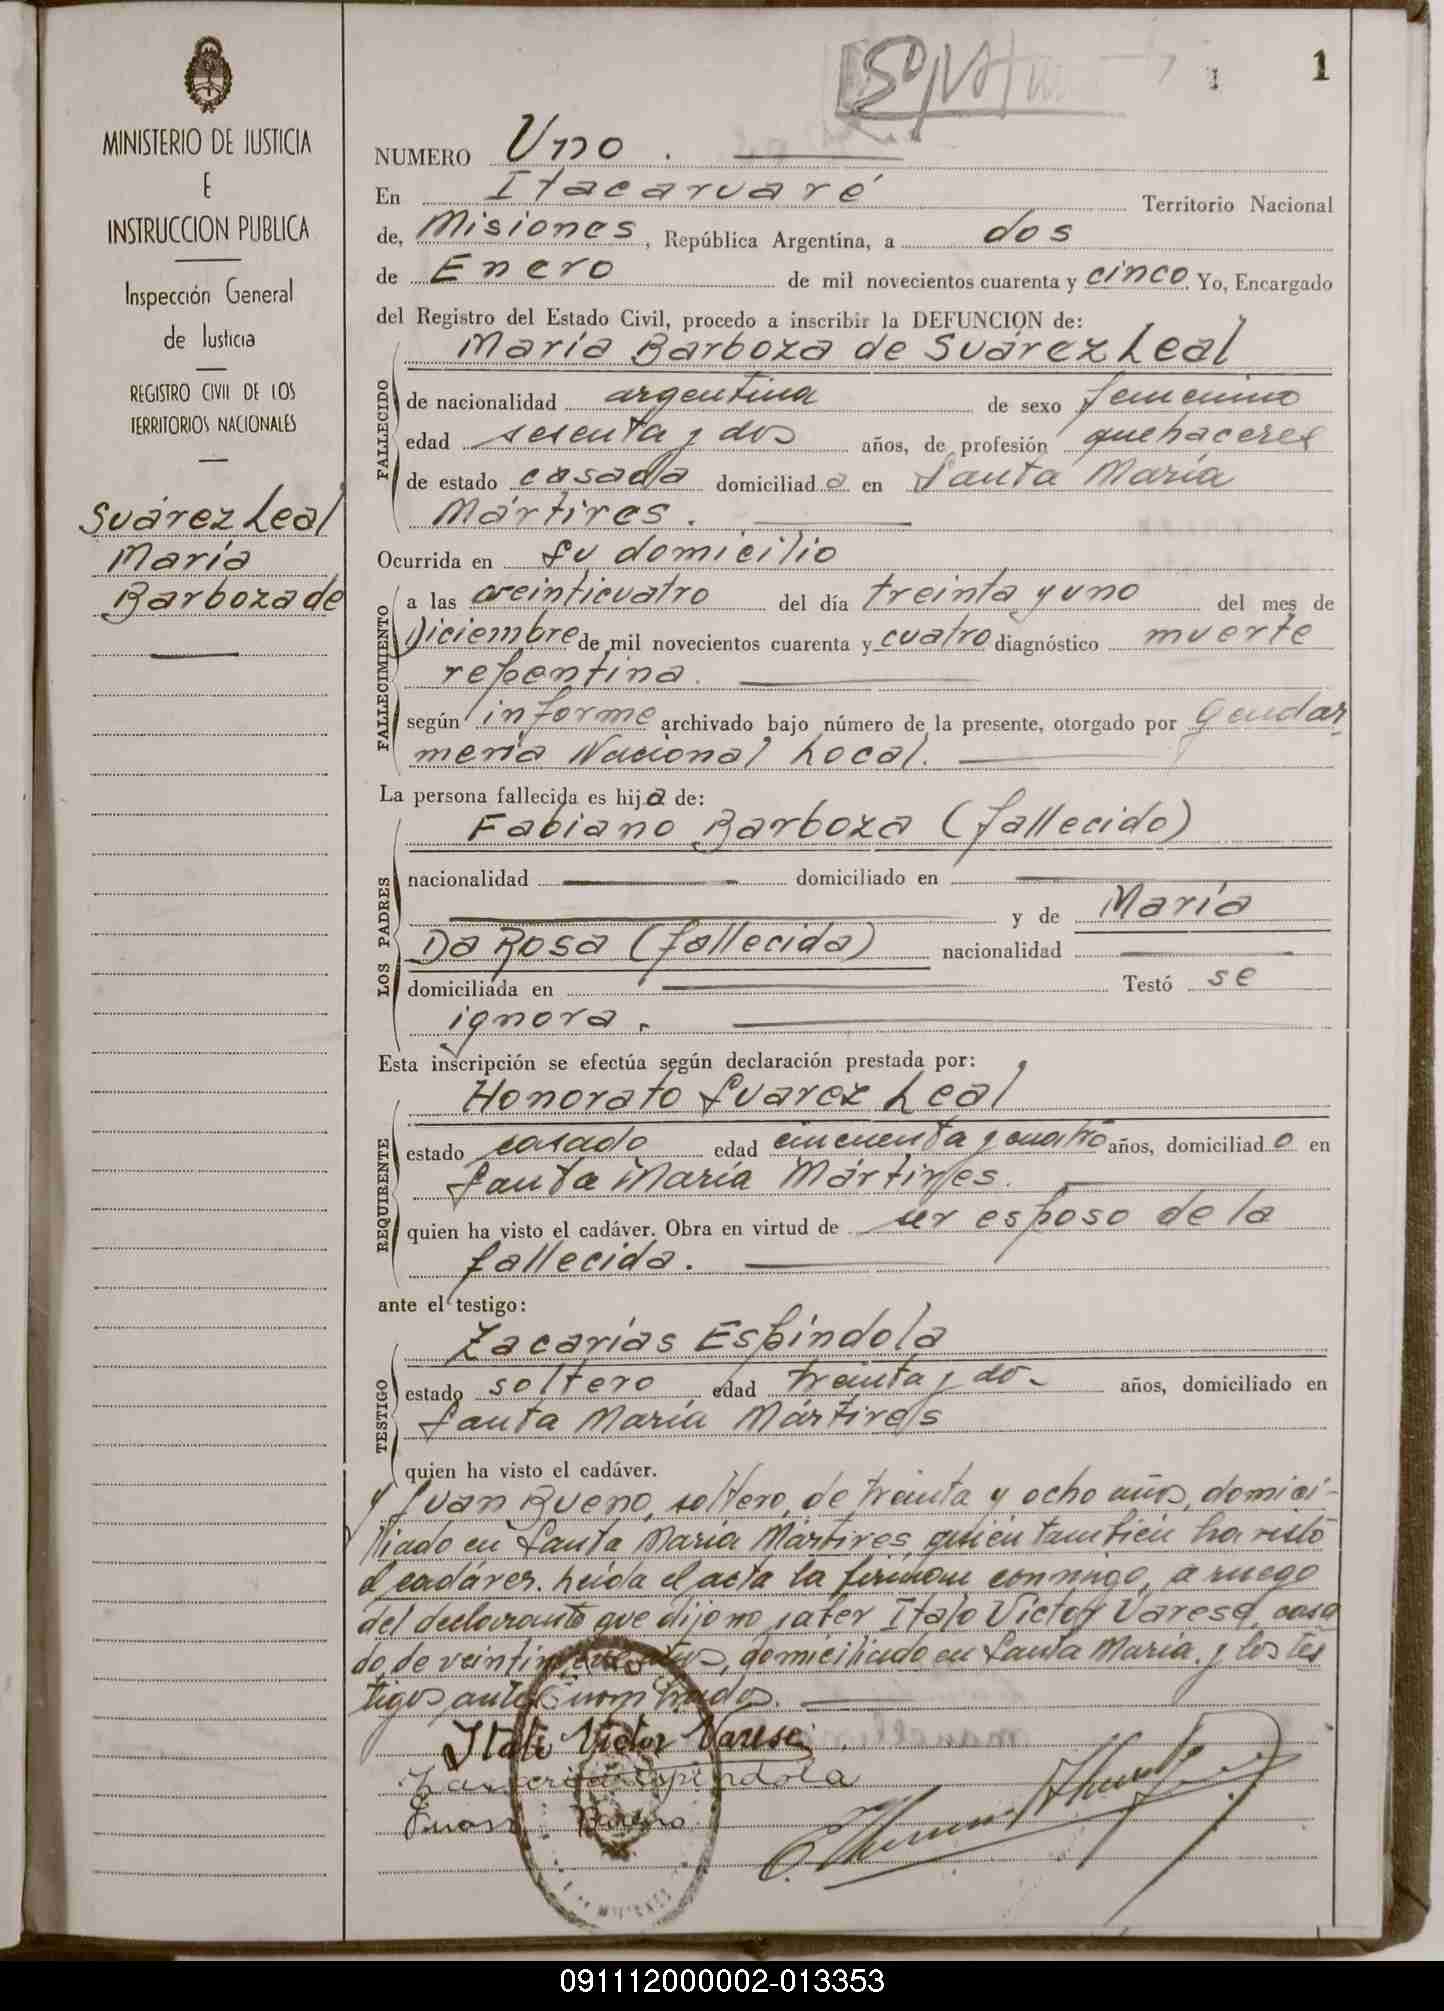 1
MINISTERIO DE JUSTICIA
E
INSTRUCCION PUBLICA
Inspección General
de Justicia
REGISTRO CIVIL DE LOS
TERRITORIOS NACIONALES
Suárez Leal
María
Barboza de
NUMERO Uno.
En Itacaruaré Territorio Nacional
de, Misiones, República Argentina, a dos
de Enero de mil novecientos cuarenta y cinco. Yo, Encargado
del Registro del Estado Civil, procedo a inscribir la DEFUNCIÓN de:
María Barboza de Suárez Leal
FALLECIDO
de nacionalidad argentina de sexo femenino
edad sesenta y dos años, de profesión quehaceres
de estado casada domiciliad a en Santa María
Mártires.
Ocurrida en su domicilio
FALLECIMIENTO
a las veinticuatro del día treinta y uno del mes de
Diciembre de mil novecientos cuarenta y cuatro diagnóstico muerte
repentina.
según informe archivado bajo número de la presente, otorgado por Gendar
mería Nacional Local.
La persona fallecida es hija de:
LOS PADRES
Fabiano Barboza (fallecido)
nacionalidad domiciliado en
y de María
Da Rosa (fallecida) nacionalidad
domiciliada en Testó se
ignora.
Esta inscripción se efectúa según declaración prestada por:
REQUIRENTE
Honorato Suarez Leal
estado casado edad cincuenta y cuatro años, domiciliad o en
Santa María Mártires.
quien ha visto el cadáver. Obra en virtud de ser esposo de la
fallecida.
ante el testigo:
TESTIGO
Zacarías Espíndola
estado soltero edad treinta y dos años, domiciliado en
Santa María Mártires
quien ha visto el cadáver.
y Juan Bueno, soltero, de treinta y ocho años, domici-
liado en Santa María Mártires, quién también ha visto
el cadáver. Leída el acta la firman conmigo, a ruego
del declarante que dijo no saber Italo Víctor Varese, casa
do, de veintinueve años, domiciliado en Santa María y los tes
tigos antes nombrados.
Italo Victor Varese
Zacarias Espindola
Juan Bueno
MISIONES
091112000002-013353